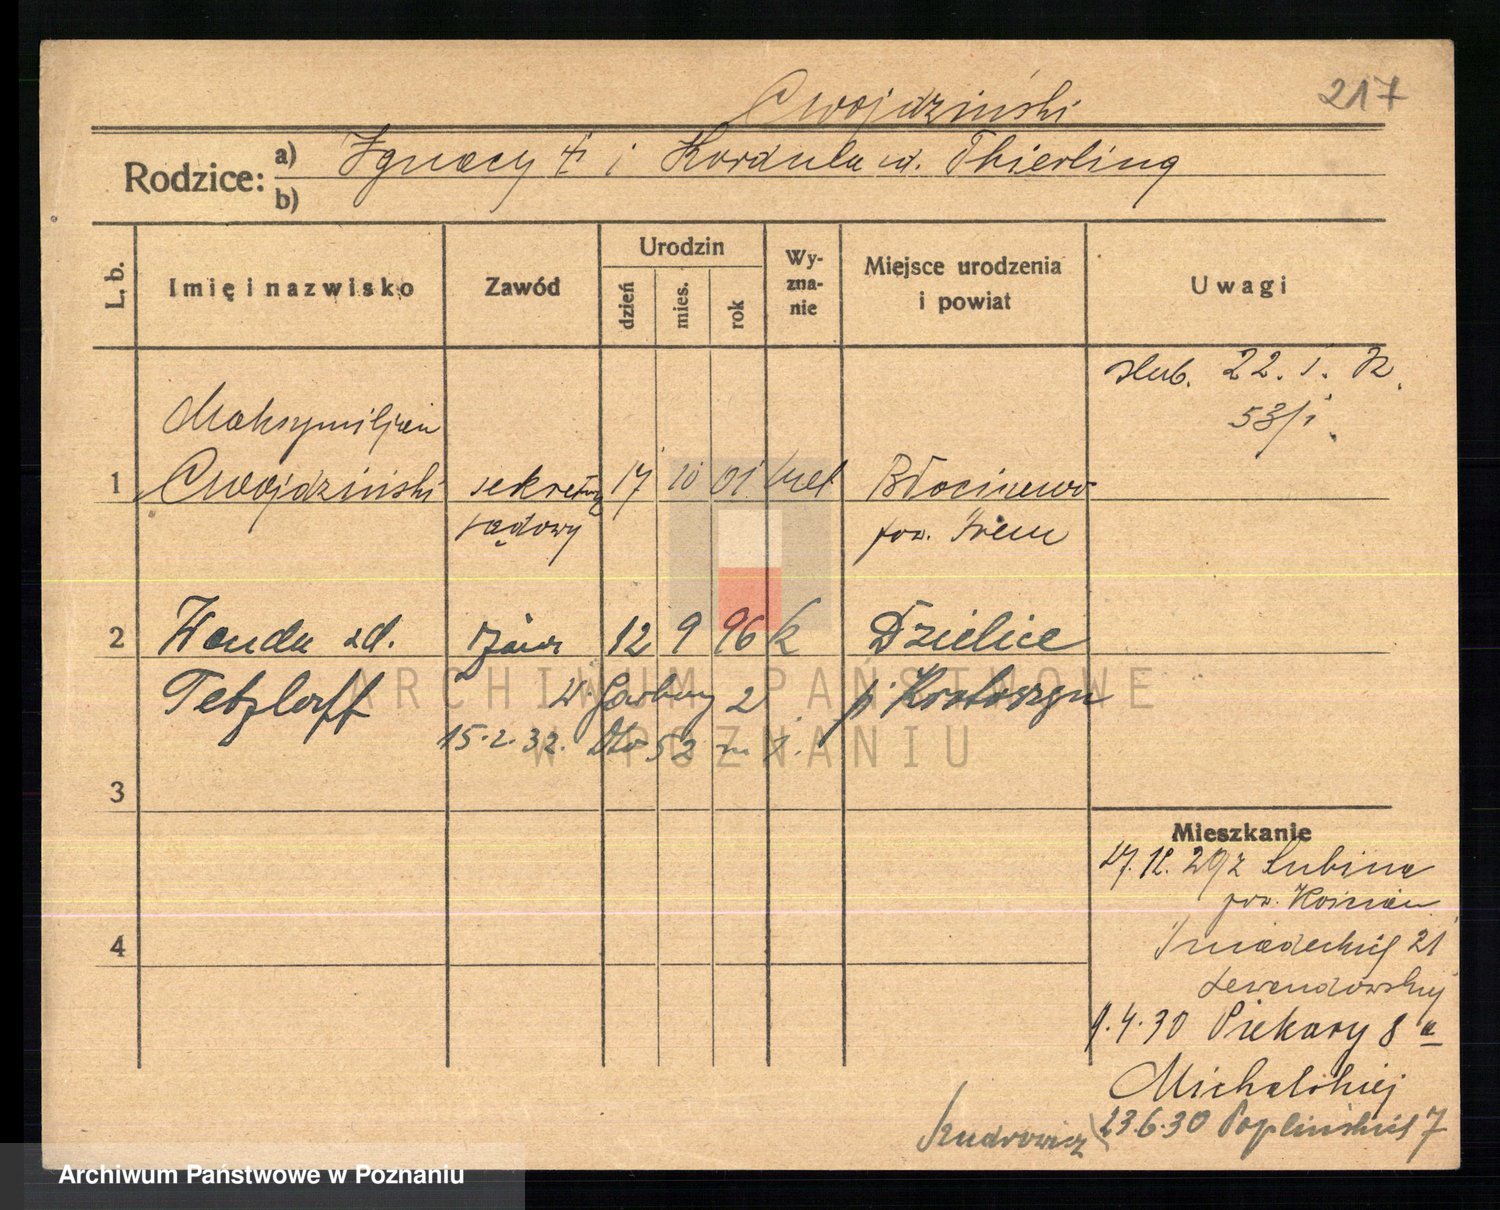 217
Cwojdziński
Rodzice: a) Ignacy † i Kordula ud. Thierling
b)
L. b. Imię i nazwisko Zawód Urodzin dzień mies. rok Wy-zna-nie Miejsce urodzenia i powiat Uwagi
ślub. 22. I. 32.
53/i
Maksymiljan
1 Cwojdziński sekretarz 17 10 01 kat Błociszewo
sądowy pow. Śrem
2 Wanda zd. żona 12 9 96 k Dzielice
Tetzlaff W. Garbary 2 p. Krotoszyn
15.2.32. Dto 52 m 1.
3
Mieszkanie
17.12.29 z Lubinia
pow. Kościan
Śniadeckich 21
Lewandowskiej
4
9.4.30 Piekary 8 a
Michalskiej
23.6.30 Poplińskich 7
Szudrowicz
ARCHIWUM PAŃSTWOWE
W POZNANIU
Archiwum Państwowe w Poznaniu